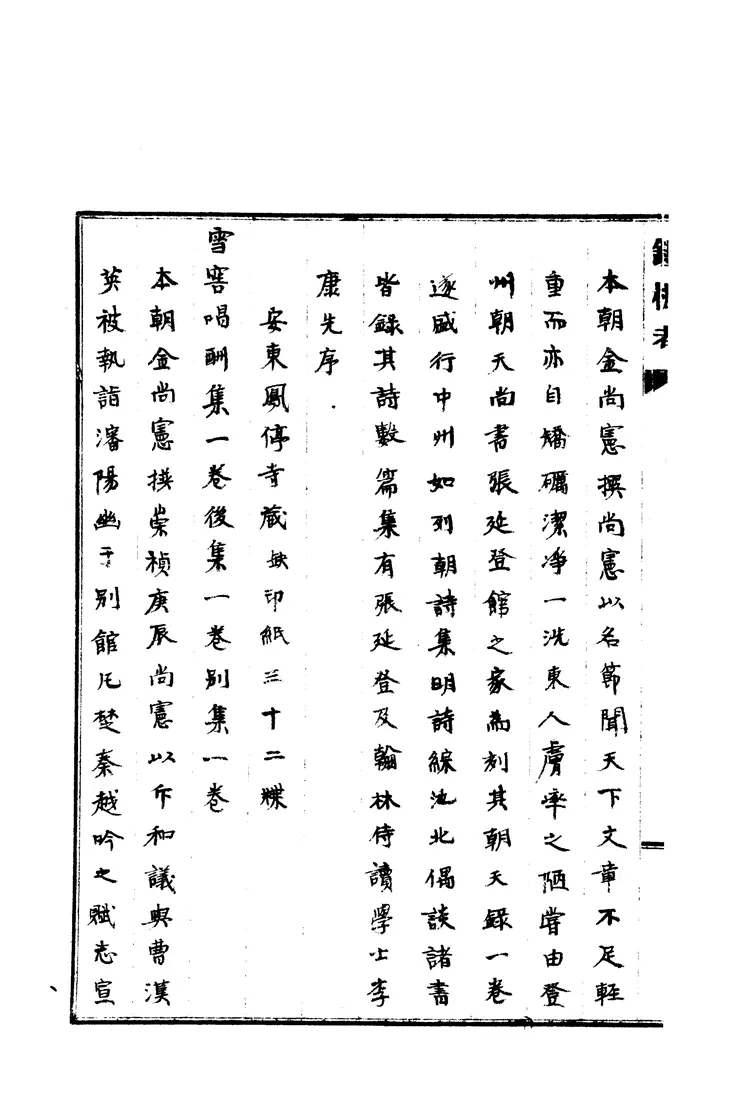 鏤板考
本朝金尚憲撰尚憲以名節聞天下文章不足輕
重而亦自矯礪潔净一洗東人膚率之陋嘗由登
州朝天尚書張延登館之家為刻其朝天錄一卷
遂盛行中州如列朝詩集明詩綜池北偶談諸書
皆錄其詩數篇集有張延登及翰林侍讀學士李
康先序
安東鳳停寺藏缺印紙三十二牒
雪窖唱酬集一卷後集一卷別集一卷
本朝金尚憲撰崇禎庚辰尚憲以斥和議與曹漢
英被執詣瀋陽幽于別館凡楚秦越吟之賦志宣